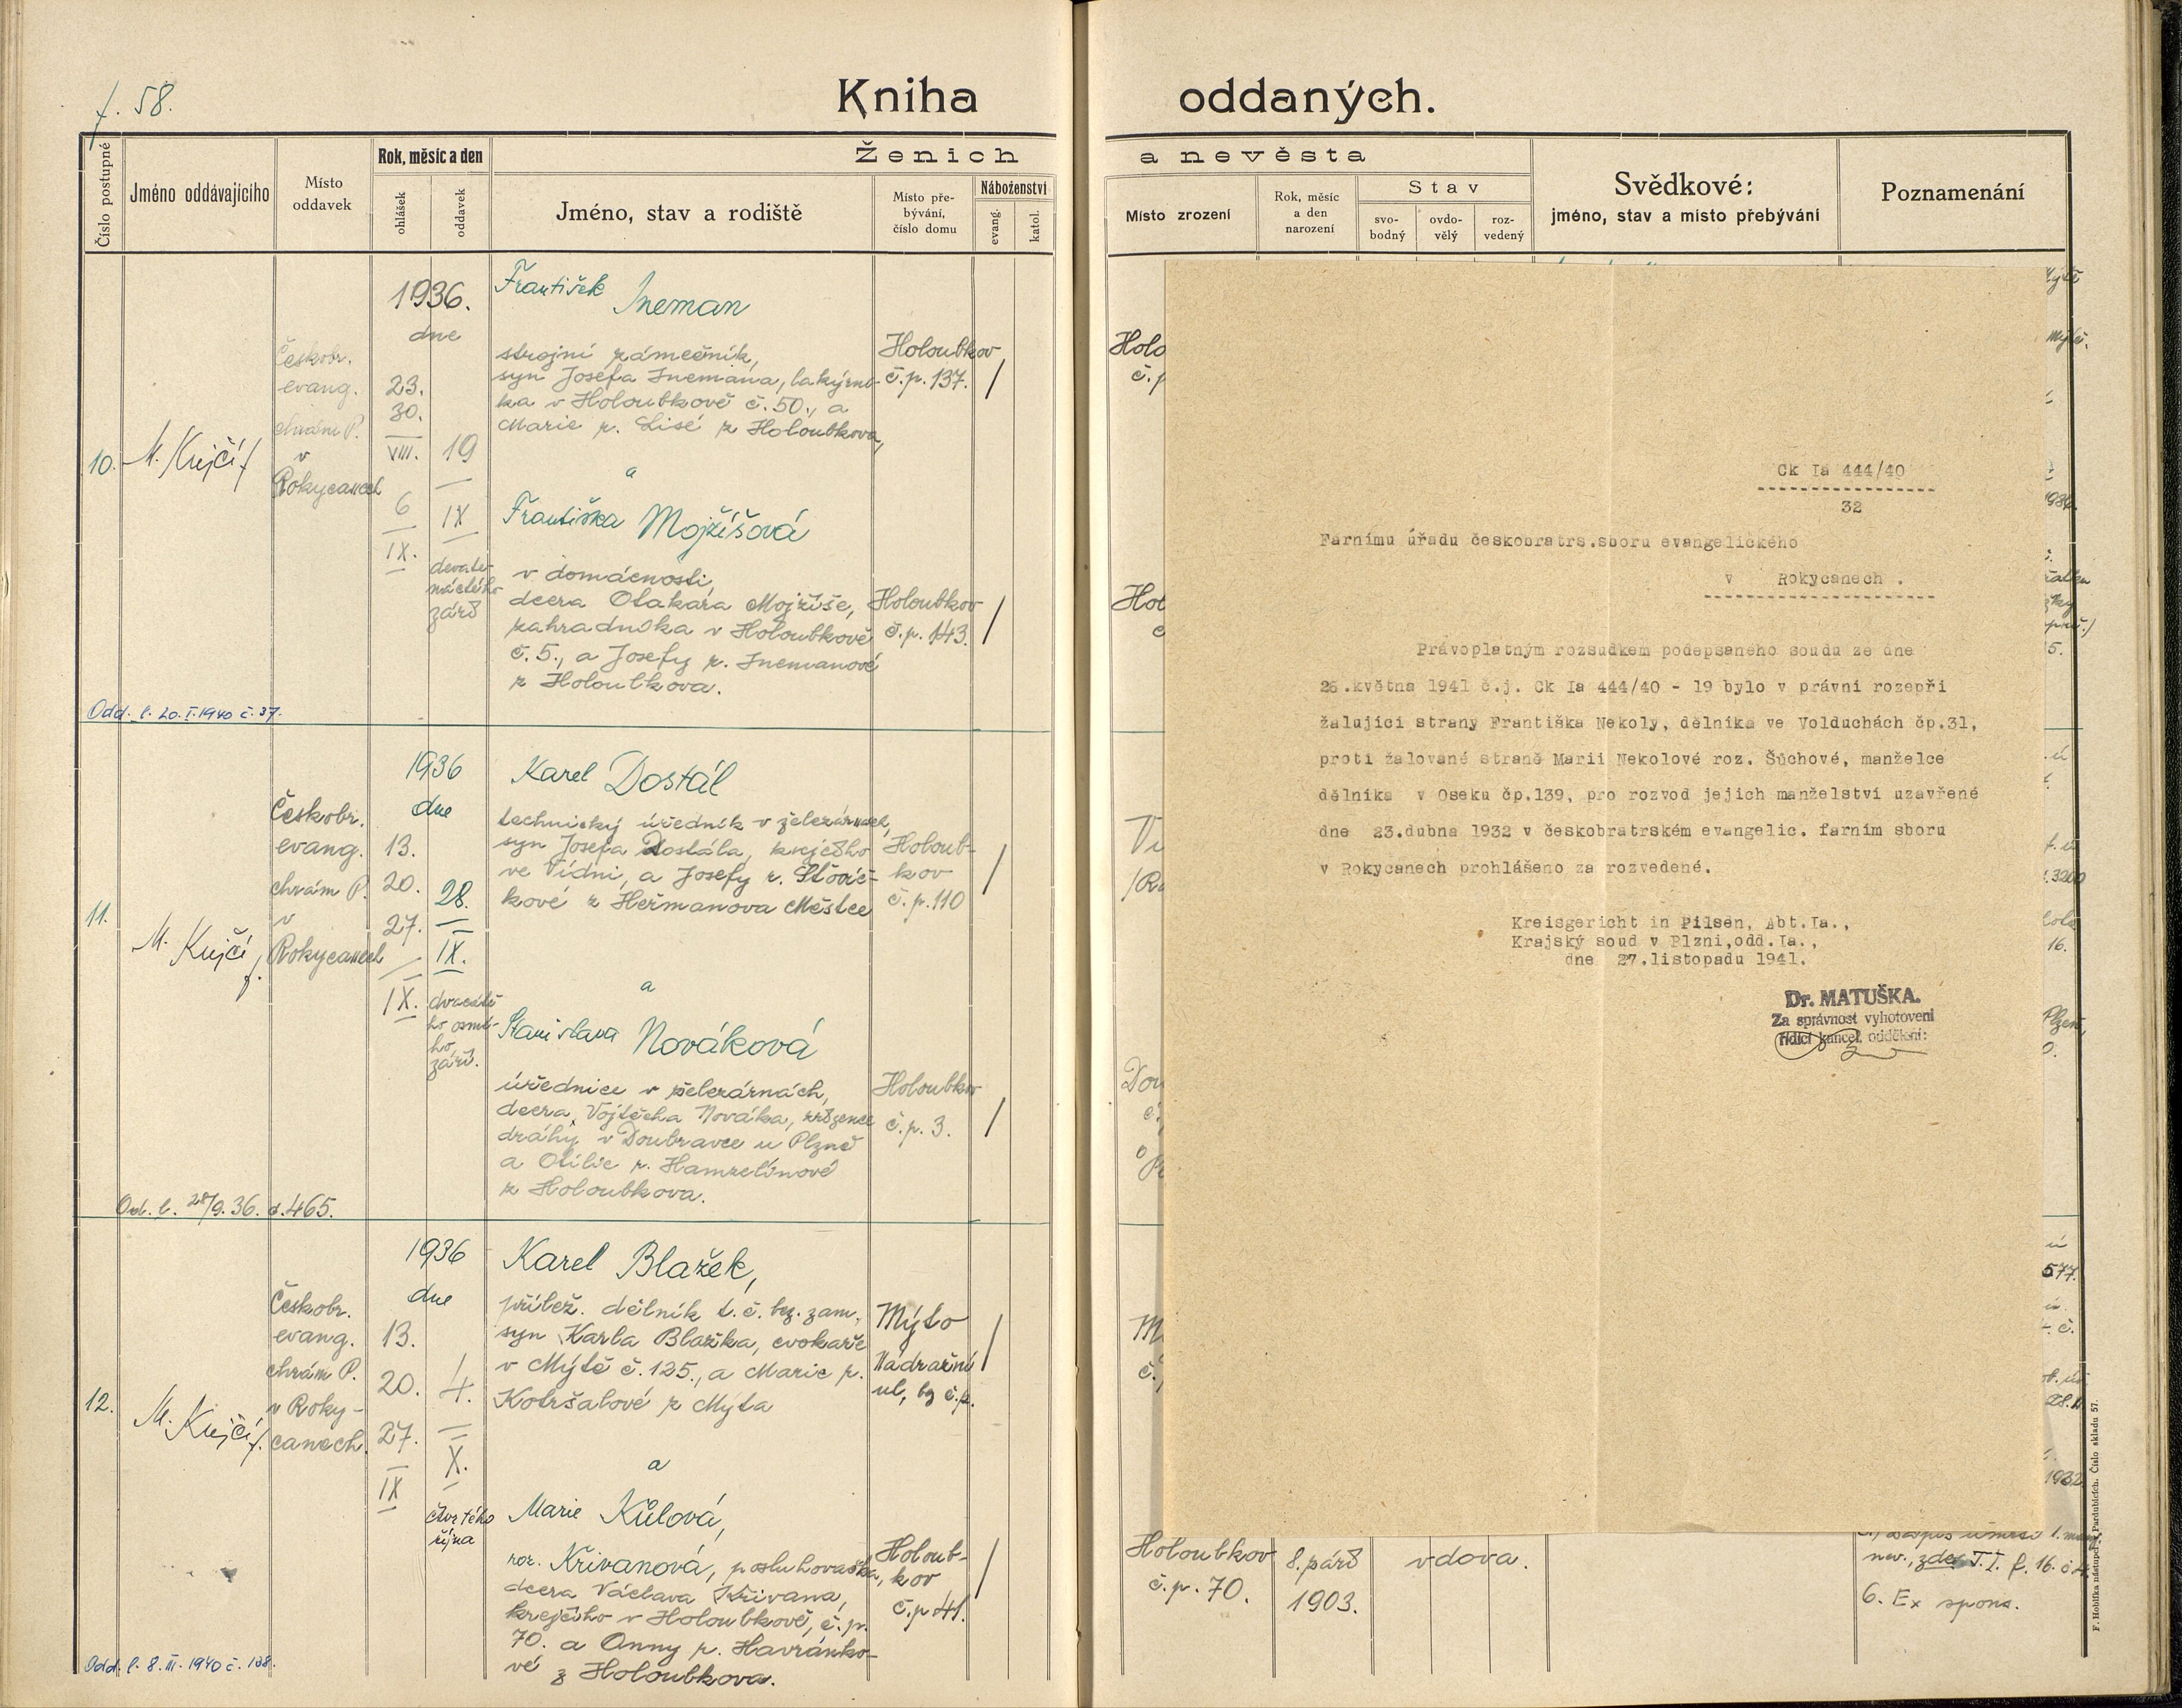 f. 58.
Kniha oddaných.
Číslo postupné
Jméno oddávajícího
Místo
oddavek
Rok, měsíc a den
ohlášek
oddavek
Ženich
Jméno, stav a rodiště
Místo pře-
bývání,
číslo domu
Náboženství
evang.
katol.
a nevěsta
Místo zrození
Rok, měsíc
a den
narození
Stav
svo-
bodný
ovdo-
vělý
roz-
vedený
Svědkové:
jméno, stav a místo přebývání
Poznamenání
10.
M. Krejčí f.
Českobr.
evang.
chrám P.
v
Rokycanech
1936.
dne
23.
30.
VIII.
6
IX.
19
IX
devate-
náctého
září
František
Ineman
strojní zámečník,
syn Josefa Inemana, lakýrní-
ka v Holoubkově č. 50., a
Marie r. Lisé z Holoubkova,
a
Františka Mojžíšová
v domácnosti,
dcera Otakara Mojžíše,
zahradníka v Holoubkově
č. 5., a Josefy r. Inemanové
z Holoubkova.
Holoubkov
č.p. 137.
Holoubkov
č.p. 143.
Odd. l. 20. I. 1940 č. 37.
11.
M. Krejčí f.
Českobr.
evang.
chrám P.
v
Rokycanech
1936
dne
13.
20.
27.
IX.
28.
IX.
dvacáté-
ho osmé-
ho
září.
Karel Dostál
technický úředník v železárnách,
syn Josefa Dostála, krejčího
ve Vídni, a Josefy r. Šťovíč-
kové z Heřmanova Městce
a
Stanislava Nováková
úřednice v železárnách,
dcera Vojtěcha Nováka, zřízence
dráhy v Doubravce u Plzně
a Otilie r. Hamzelínové
z Holoubkova.
Holoub-
kov
č.p. 110
Holoubkov
č.p. 3.
Od. l. 28/9. 36. č. 465.
12.
M. Krejčí f.
Českobr.
evang.
chrám P.
v Roky-
canech.
1936
dne
13.
20.
27.
IX
4.
X.
čtvrtého
října
Karel Blažek,
přílež. dělník t. č. bez zam.,
syn Karla Blažka, cvokaře
v Mýtě č. 125., a Marie r.
Kotršalové z Mýta
a
Marie Kůlová,
roz. Křivanová, posluhovačka,
dcera Václava Křivana,
krejčího v Holoubkově, č.p.
70. a Anny r. Havránko-
vé z Holoubkova.
Mýto
Nádražní
ul, bz č.p.
Holoub-
kov
č.p 41.
Odd. l. 8. III. 1940 č. 138.
Ck Ia 444/40
32
Farnímu úřadu českobratrs.sboru evangelického
v Rokycanech .
Právoplatným rozsudkem podepsaného soudu ze dne
26.května 1941 č.j. Ck Ia 444/40 - 19 bylo v právní rozepři
žalující strany Františka Nekoly, dělníka ve Volduchách čp.31,
proti žalované straně Marii Nekolové roz. Šůchové, manželce
dělníka v Oseku čp.139, pro rozvod jejich manželství uzavřené
dne 23.dubna 1932 v českobratrském evangelic. farním sboru
v Rokycanech prohlášeno za rozvedené.
Kreisgericht in Pilsen, Abt.Ia.,
Krajský soud v Plzni,odd.Ia.,
dne 27.listopadu 1941.
Dr. MATUŠKA.
Za správnost vyhotovení
řídící kancel. oddělení:
Holoubkov
č.p. 70.
8. září
1903.
vdova.
nev., zde T. I. f. 16. č
6. Ex spons.
F. Hoblíka nástupci, Pardubicích. Číslo skladu 57.